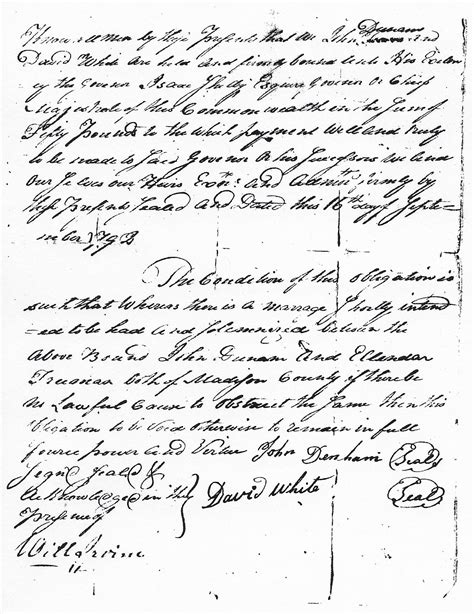 Know all men by these Presents that We John Dunam and
David White Are held And firmly bound unto His Excelen
cy the Govenor Isaac Shelby Esquire Govenor Or Chief
Magistrate of this Commonwealth in the Sum of
Fifty Pounds to the Which payment Well and truly
to be made to said Govenor Or his Successors We bind
Our Selves our Heirs Exors: And Admin:rs firmly by
these Presents Sealed And Dated this 16th day of Septe-
mber 1793
The Condition of this Obligation is
such that Whereas there is a marrage Shortly intend
=ed to be had And Solemnized between the
Above Bound John Dunam And Ellendar
Trueman both of Madison County if there be
no Lawful Cause to Obstruct the Same then this
Obligation to be Void otherwise to remain in full
fource power and Virtue John Denham Seal
Signd Seald &
acknowledged in the } David White Seal
Presence of
Will Irvine